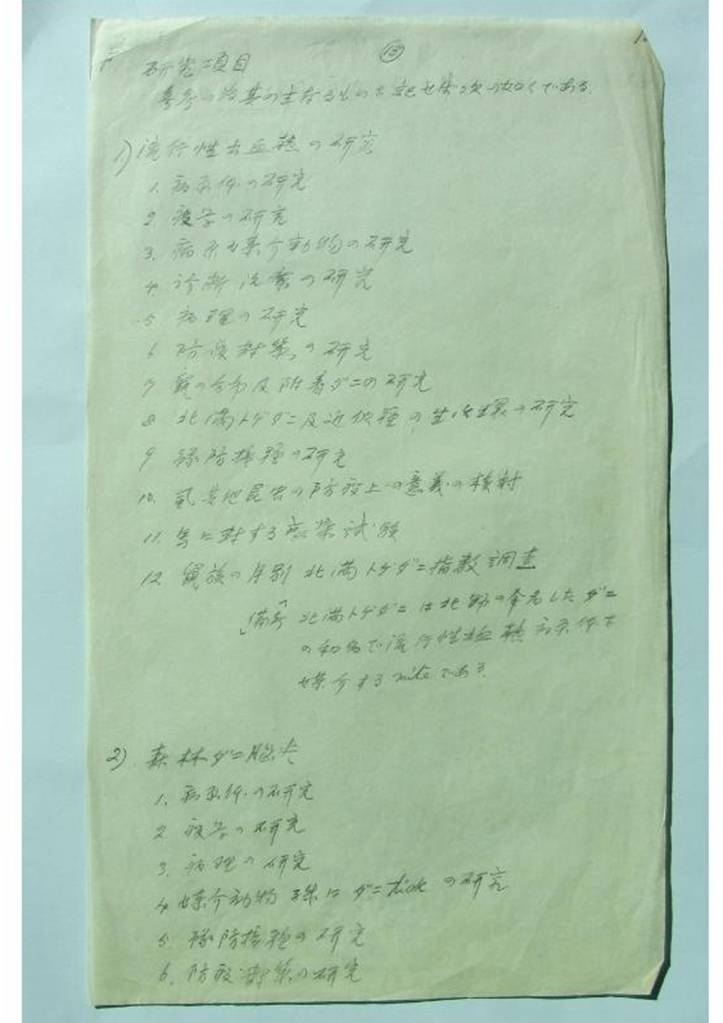 13
研究項目
参考の為其の主なるものを記せば次の如くである。
1) 流行性出血熱の研究
1. 病原体の研究
2. 疫学の研究
3. 病原と媒介動物の研究
4. 診断治療の研究
5. 病理の研究
6. 防疫対策の研究
7. 鼠の分布及附着ダニの研究
8. 北満トゲダニ及近似種の生活環の研究
9. 予防接種の研究
10. 昆虫の防疫上の意義の検討
11. 馬に対する感染試験
12. 鼠族の月別北満トゲダニ指数調査
備考 北満トゲダニは北野の命名したダニ
の和名で流行性出血熱病原体を
媒介するmiteである
2) 森林ダニ脳炎
1. 病原体の研究
2. 疫学の研究
3. 病理の研究
4. 媒介動物殊にダニtickの研究
5. 予防接種の研究
6. 防疫対策の研究